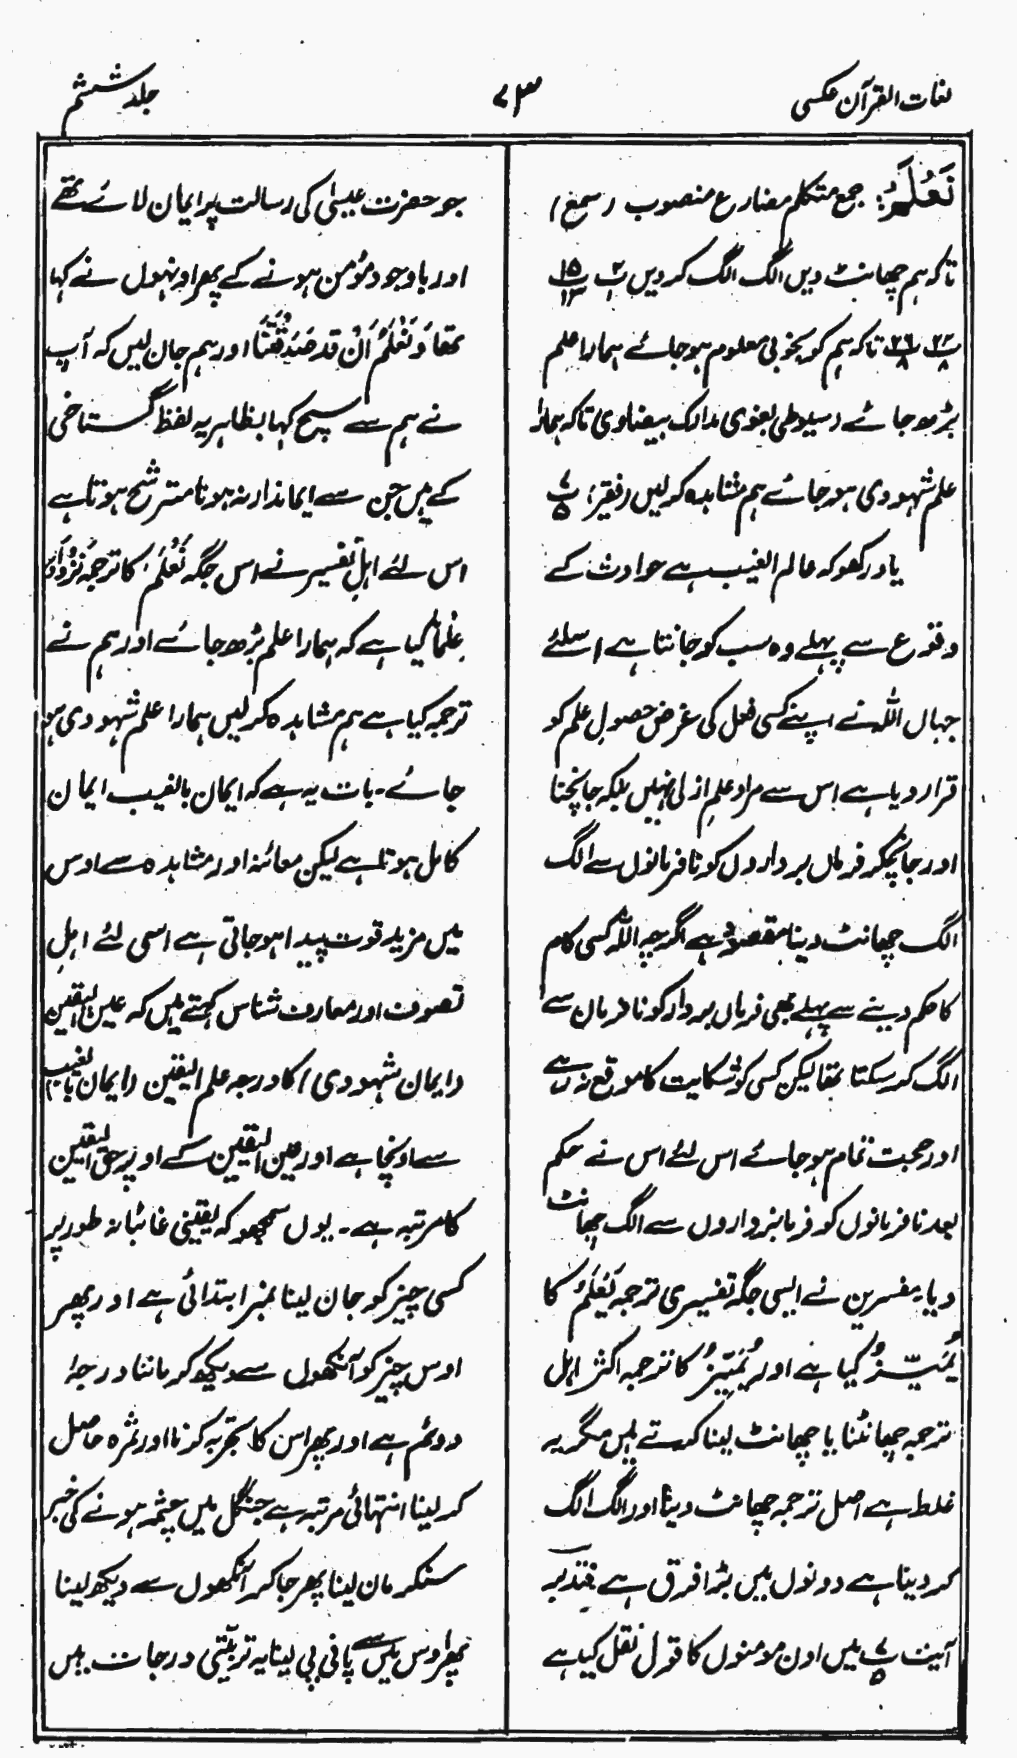 لغات القرآن عکسی
۷۳
جلد ششم
نَعْلَمَ: جمع متکلم مضارع منصوب (سمع)
تاکہ ہم چھانٹ دیں الگ الگ کردیں پ ۲/۱ پ ۱۵/۱۳
پ ۲۲/۸ پ ۲۶/۸ تاکہ ہم کو بخوبی معلوم ہو جائے ہمارا علم
بڑھ جائے (سیوطی بغوی مدارک بیضاوی) تاکہ ہمارا
علم شہودی ہو جائے ہم مشاہدہ کرلیں (فقیر) پ ۷/۵
یاد رکھو کہ عالم الغیب ہے حوادث کے
وقوع سے پہلے وہ سب کو جانتا ہے اسلئے
جہاں اللہ نے اپنے کسی فعل کی غرض حصولِ علم کو
قرار دیا ہے اس سے مراد علمِ ازلی نہیں بلکہ جانچنا
اور جانچکر فرماں برداروں کو نافرمانوں سے الگ
الگ چھانٹ دینا مقصود ہے اگرچہ اللہ کسی کام
کا حکم دینے سے پہلے بھی فرماں بردار کو نافرمان سے
الگ کرسکتا تھا لیکن کسی کو شکایت کا موقع نہ رہے
اور حجت تمام ہو جائے اس لئے اس نے حکم
بعد نافرمانوں کو فرمانبرداروں سے الگ چھانٹ
دیا، مفسرین نے ایسی جگہ تفسیری ترجمہ نَعْلَمُ کا
یُمَیِّزُ کیا ہے اور یُمَیِّزُ کا ترجمہ اکثر اہل
ترجمہ چھانٹنا یا چھانٹ لینا کرتے ہیں مگر یہ
غلط ہے اصل ترجمہ چھانٹ دینا اور الگ الگ
کردینا ہے دونوں میں بڑا فرق ہے فتدبر
آیت پ ۷/۵ میں اون مومنوں کا قول نقل کیا ہے
جو حضرت عیسٰی کی رسالت پر ایمان لائے تھے
اور باوجود مؤمن ہونے کے پھر اونہوں نے کہا
تھا وَنَعْلَمَ اَنْ قَدْ صَدَقْتَنَا اور ہم جان لیں کہ آپ
نے ہم سے سچ کہا بظاہر یہ لفظ گستاخی
کے ہیں جن سے ایماندار نہ ہونا مترشح ہوتا ہے
اس لئے اہلِ تفسیر نے اس جگہ نَعْلَمَ کا ترجمہ نَزْدَادَ
عِلْمًا کیا ہے کہ ہمارا علم بڑھ جائے اور ہم نے
ترجمہ کیا ہے ہم مشاہدہ کرلیں ہمارا علم شہودی ہو
جائے۔ بات یہ ہے کہ ایمان بالغیب ایمان
کامل ہوتا ہے لیکن معائنہ اور مشاہدہ سے اوس
میں مزید قوت پیدا ہو جاتی ہے اسی لئے اہلِ
تصوف اور معارف شناس کہتے ہیں کہ عین الیقین
(ایمان شہودی) کا درجہ علم الیقین (ایمان بالغیب)
سے اونچا ہے اور عین الیقین سے اوپر حق الیقین
کا مرتبہ ہے۔ یوں سمجھو کہ یقینی غائبانہ طور پر
کسی چیز کو جان لینا نمبر ابتدائی ہے اور پھر
اوس چیز کو آنکھوں سے دیکھ کر ماننا درجۂ
دوئم ہے اور پھر اس کا تجربہ کرنا اور ثمرہ حاصل
کرلینا انتہائی مرتبہ ہے جنگل میں چشمہ ہونے کی خبر
سنکر مان لینا پھر جاکر آنکھوں سے دیکھ لینا
پھر اوس میں سے پانی پی لینا یہ تربیتی درجات ہیں